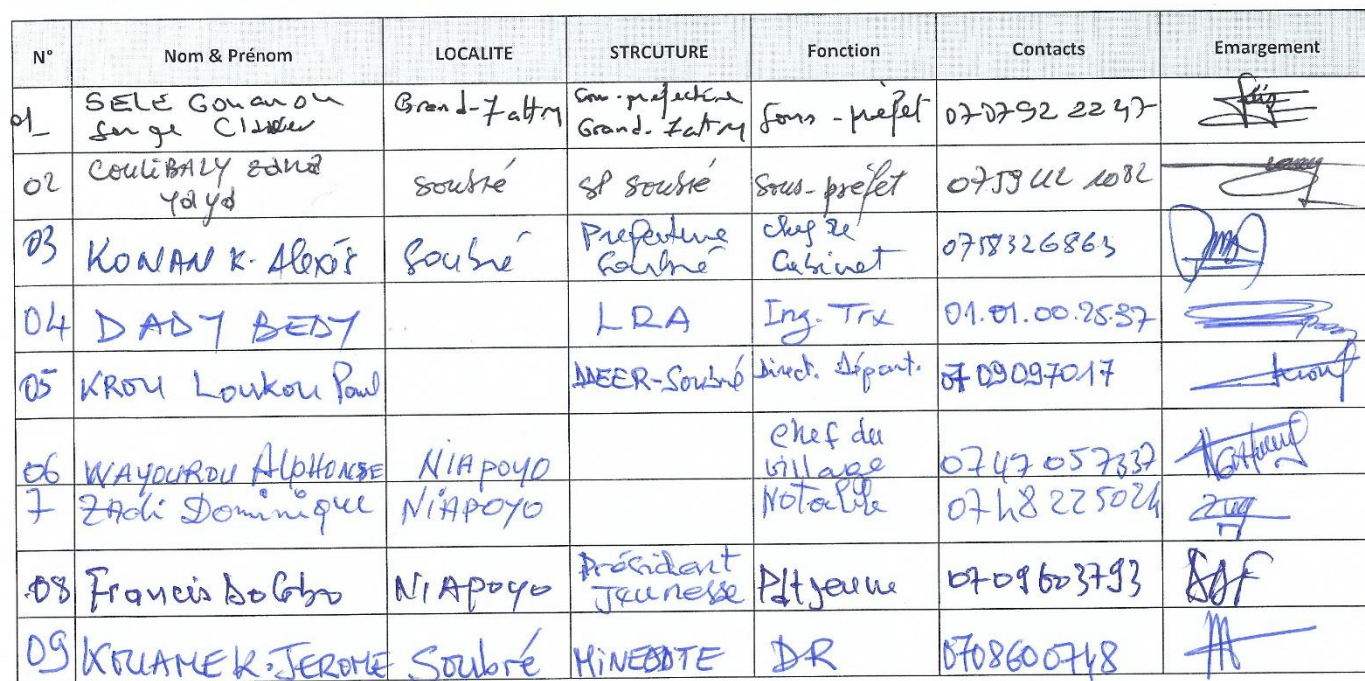 N° Nom & Prénom LOCALITE STRCUTURE Fonction Contacts Emargement
01 SELE Gouanou Serge Grand-Zattry Sous-prefecture Grand-Zattry Sous-préfet 07 07 92 22 47
02 COULIBALY Yaya Soubré SP Soubré Sous-préfet 0759 42 1082
03 KONAN K. Alexis Soubré Prefecture Soubré Chef de Cabinet 0758326863
04 DADY BEDY LRA Ing. Trx 01.01.00.25.37
05 KROU Loukou Paul DDEER-Soubré Direct. Départ. 07 09097017
06 WAYOUROU ALPHONSE NIAPOYO Chef du village 0747057337
7 ZADI Dominique NIAPOYO Notable 0748225024
08 Francis NIAPOYO Président Jeunesse Pdt jeune 0709603793
09 KOUAME K. JEROME Soubré DR 0708600748